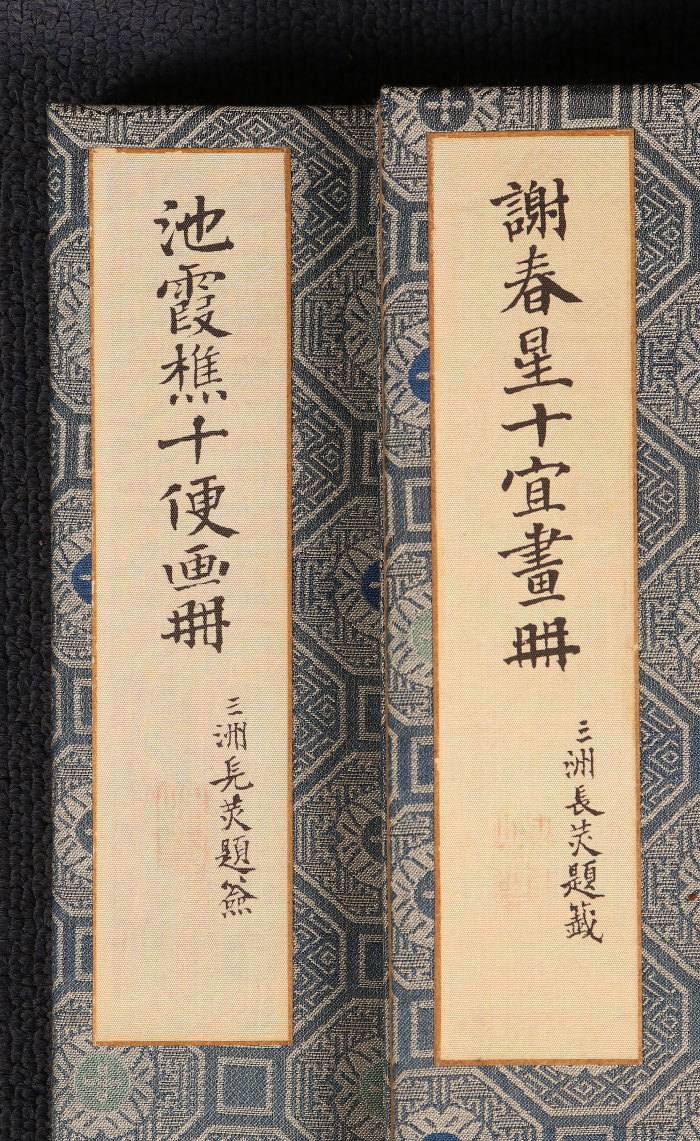 謝春星十宜畫冊
三洲長炗題籤
池霞樵十便画冊
三洲長炗題簽